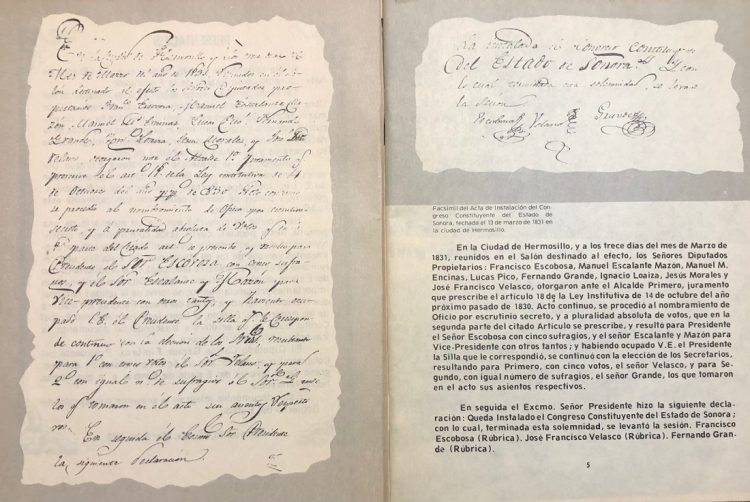 En la Ciudad de Hermosillo y a los trece dias del
Mes de Marzo del año de 1831, reunidos en el Sa-
lon destinado al efecto los Señores Diputados pro-
pietarios Fran.co Escovosa, Manuel Escalante Ma-
zón, Manuel M.a Encinas, Lucas Pico, Fernando
Grande, Loaiza, Jesus Morales y José
Velasco, otorgaron ante el Alcalde 1.o juramento q.e
prescrive el art.o 18 de la Ley institutiva de 14
de Octubre del año de 830. Acto continuo
se procedió al nombramiento de Oficio por escrutinio
secreto, y a pluralidad absoluta de votos q.e en la
2.a parte del Citado art.o se prescrive, y resultó para
Presidente el Sor. Escovosa con cinco sufra-
gios, y el Sor. Escalante y Mazón para
Vice-presidente con otros tantos, y haviendo ocu-
pado V.E. el Presidente la Silla q.e le correspon-
de continuó con la eleccion de los Srios. resultando
para 1.o con cinco votos el Sor. Velasco, y para
2.o con igual n.o de sufragios el Sor.
los q.e tomaron en el acto sus asientos respecti-
vos.
En seguida el Exmo. Sor. Presidente
la siguiente declaracion
instalado el Congreso Constituyente
del Estado de Sonora y con
lo cual terminada esta solemnidad, se levantó
la sesion.
Escobosa Velasco Grande
Facsímil del Acta de Instalación del Con-
greso Constituyente del Estado de
Sonora, fechada el 13 de marzo de 1831 en
la ciudad de Hermosillo.
En la Ciudad de Hermosillo, y a los trece días del mes de Marzo de
1831, reunidos en el Salón destinado al efecto, los Señores Diputados
Propietarios: Francisco Escobosa, Manuel Escalante Mazón, Manuel M.
Encinas, Lucas Pico, Fernando Grande, Ignacio Loaiza, Jesús Morales y
José Francisco Velasco, otorgaron ante el Alcalde Primero, juramento
que prescribe el artículo 18 de la Ley Institutiva de 14 de octubre del año
próximo pasado de 1830. Acto continuo, se procedió al nombramiento de
Oficio por escrutinio secreto, y a pluralidad absoluta de votos, que en la
segunda parte del citado Artículo se prescribe, y resultó para Presidente
el Señor Escobosa con cinco sufragios, y el señor Escalante y Mazón para
Vice-Presidente con otros tantos; y habiendo ocupado V.E. el Presidente
la Silla que le correspondió, se continuó con la elección de los Secretarios,
resultando para Primero, con cinco votos, el señor Velasco, y para Se-
gundo, con igual número de sufragios, el señor Grande, los que tomaron
en el acto sus asientos respectivos.
En seguida el Excmo. Señor Presidente hizo la siguiente decla-
ración: Queda Instalado el Congreso Constituyente del Estado de Sonora;
con lo cual, terminada esta solemnidad, se levantó la sesión. Francisco
Escobosa (Rúbrica). José Francisco Velasco (Rúbrica). Fernando Gran-
de (Rúbrica).
5